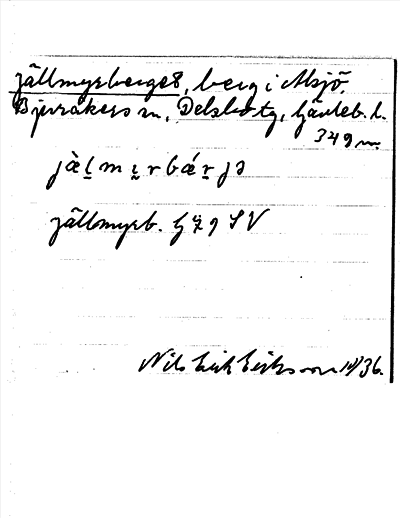 jällmyrberget, berg i Älsjö,
Bjuråkers sn, Delsbo tg, Gävleb. l.
349 m.
jàl̠my̠rbár̠jə
jällmyrb. G 29 SV
Nils Erik Eriksson 1936.